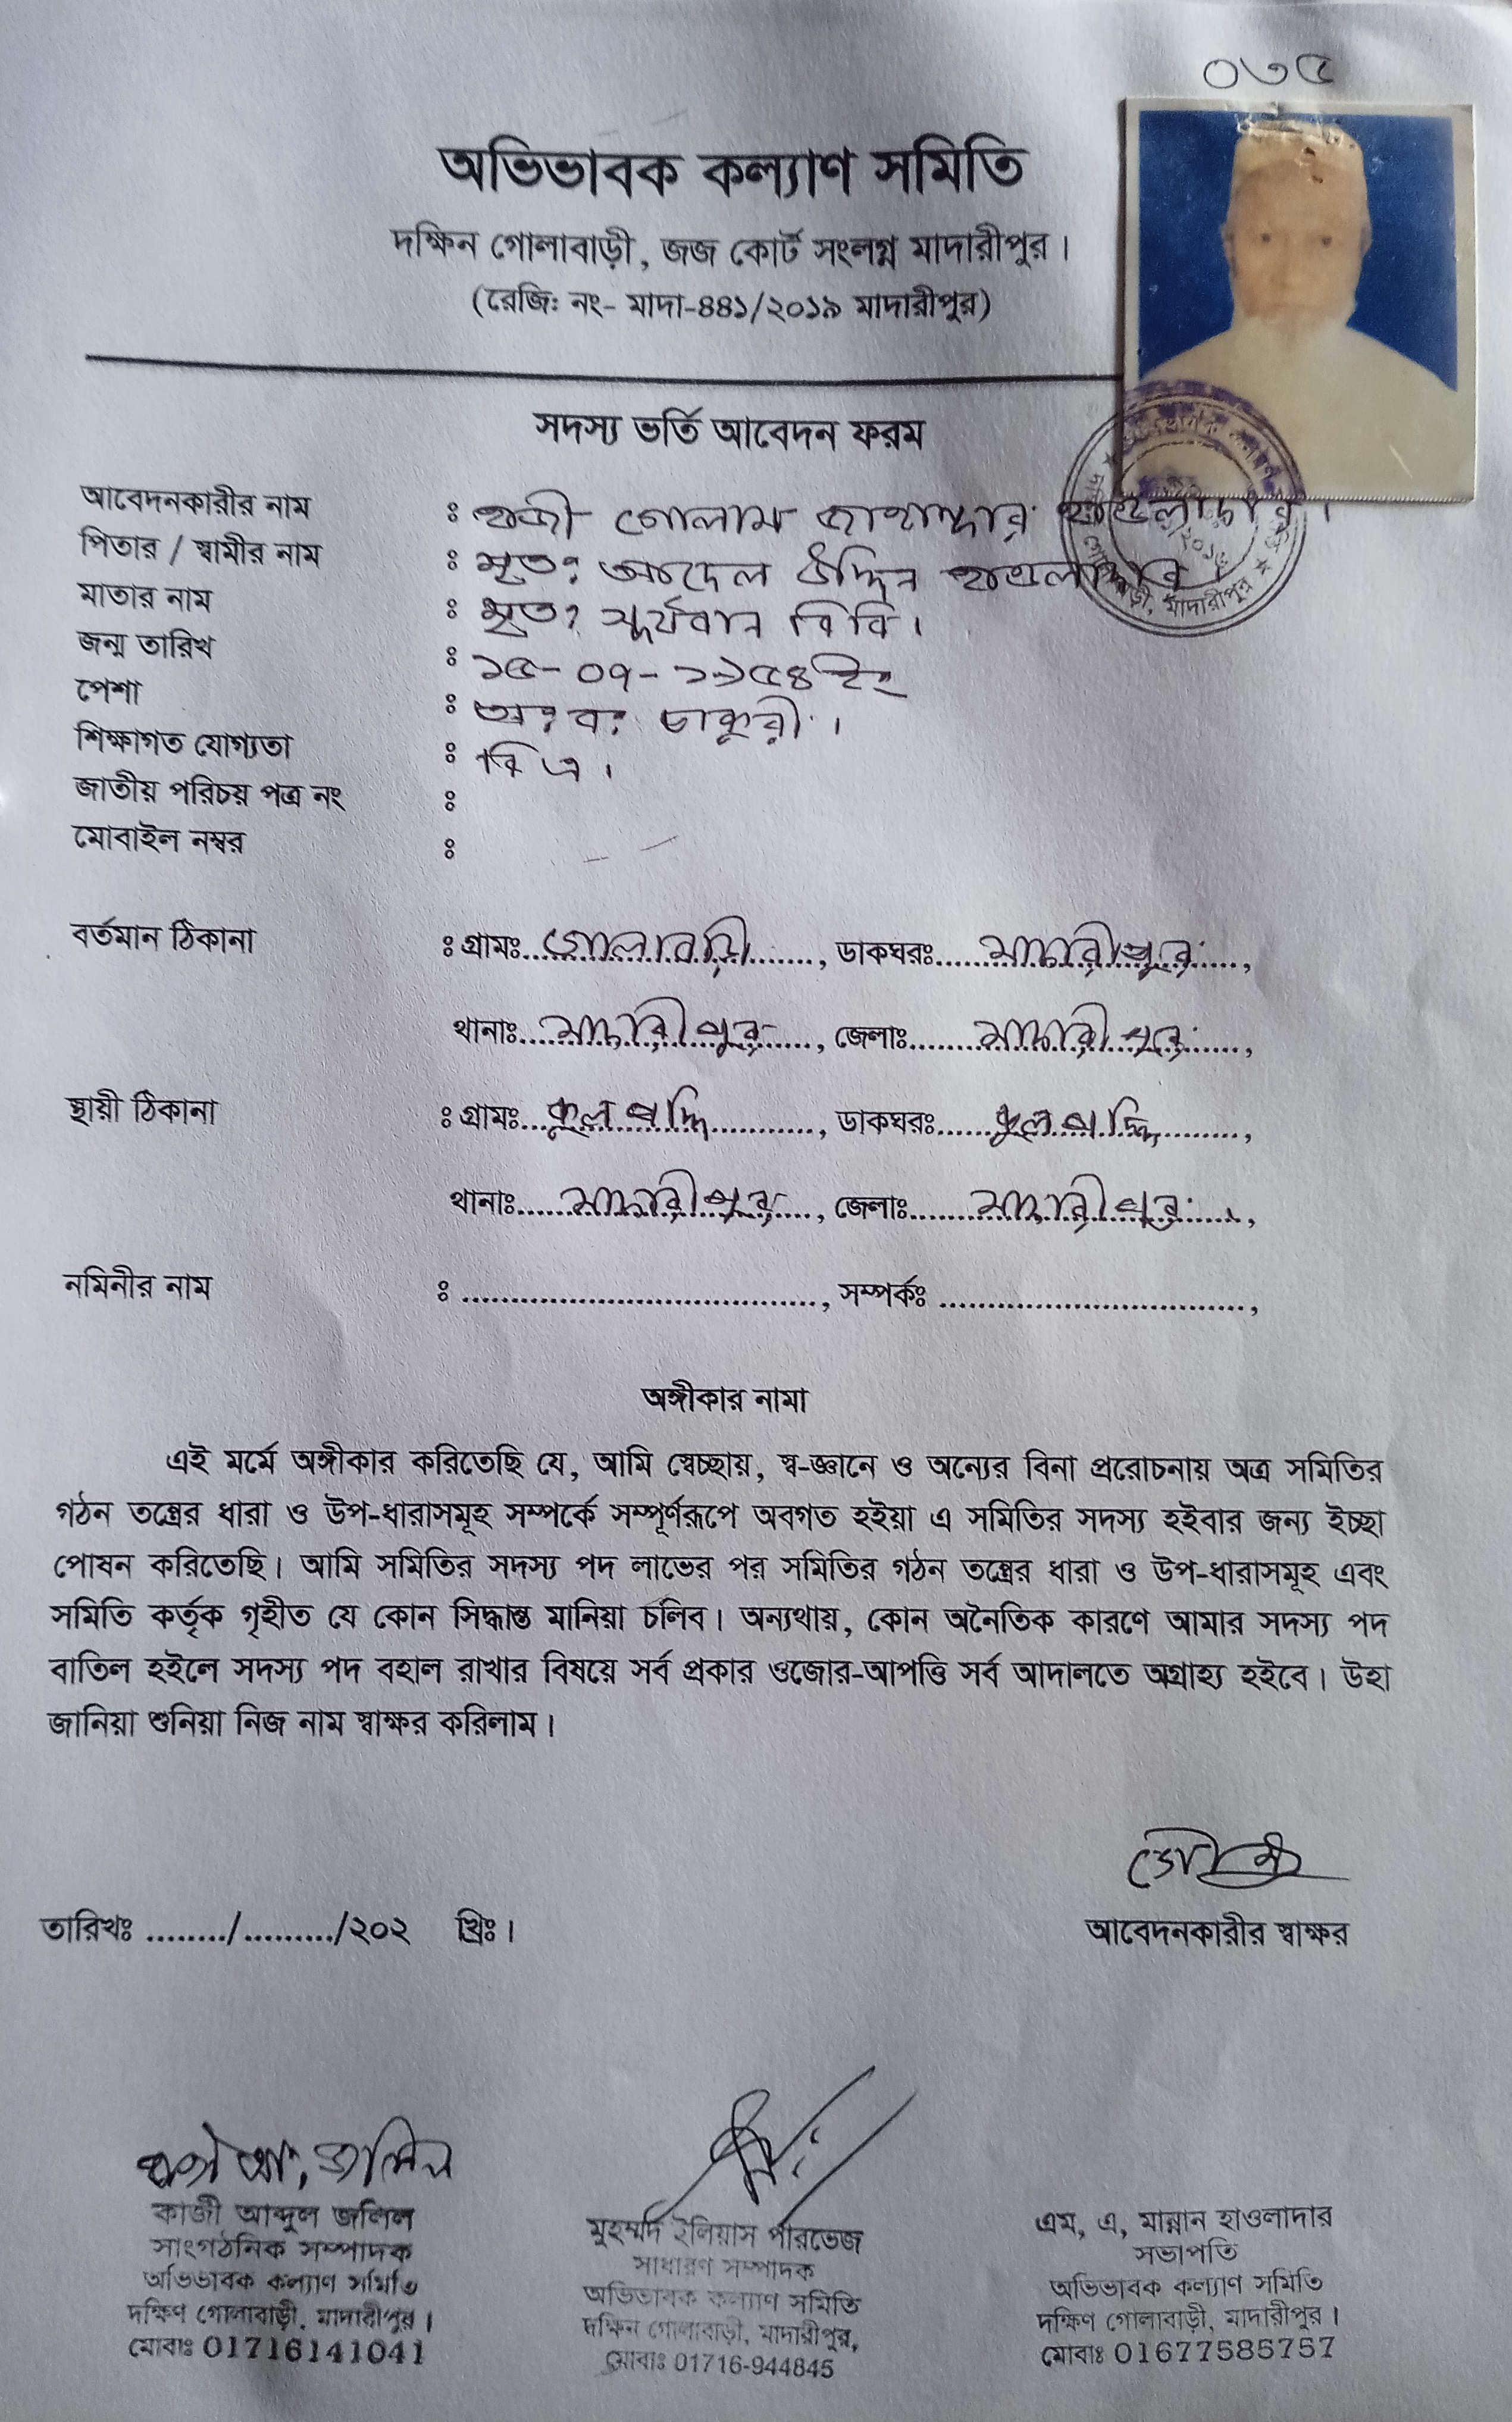 ০৩৫
অভিভাবক কল্যাণ সমিতি
দক্ষিন গোলাবাড়ী, জজ কোর্ট সংলগ্ন মাদারীপুর।
(রেজি: নং- মাদা-৪৪১/২০১৯ মাদারীপুর)
সদস্য ভর্তি আবেদন ফরম
আবেদনকারীর নাম : হাজী গোলাম জাহাঙ্গার হাওলাদার।
পিতার / স্বামীর নাম : মৃতঃ আদেল উদ্দিন হাওলাদার।
মাতার নাম : মৃতঃ সূর্যবান বিবি।
জন্ম তারিখ : ১৫-০৭-১৯৫৪ ইং
পেশা : অঃ বঃ চাকুরী।
শিক্ষাগত যোগ্যতা : বি এ।
জাতীয় পরিচয় পত্র নং :
মোবাইল নম্বর :
বর্তমান ঠিকানা : গ্রামঃ গোলাবাড়ী, ডাকঘরঃ মাদারীপুর,
থানাঃ মাদারীপুর, জেলাঃ মাদারীপুর,
স্থায়ী ঠিকানা : গ্রামঃ কুলপদ্দি, ডাকঘরঃ কুলপদ্দি,
থানাঃ মাদারীপুর, জেলাঃ মাদারীপুর,
নমিনীর নাম : ...................................., সম্পর্কঃ ................................,
অঙ্গীকার নামা
এই মর্মে অঙ্গীকার করিতেছি যে, আমি স্বেচ্ছায়, স্ব-জ্ঞানে ও অন্যের বিনা প্ররোচনায় অত্র সমিতির
গঠন তন্ত্রের ধারা ও উপ-ধারাসমূহ সম্পর্কে সম্পূর্ণরূপে অবগত হইয়া এ সমিতির সদস্য হইবার জন্য ইচ্ছা
পোষন করিতেছি। আমি সমিতির সদস্য পদ লাভের পর সমিতির গঠন তন্ত্রের ধারা ও উপ-ধারাসমূহ এবং
সমিতি কর্তৃক গৃহীত যে কোন সিদ্ধান্ত মানিয়া চলিব। অন্যথায়, কোন অনৈতিক কারণে আমার সদস্য পদ
বাতিল হইলে সদস্য পদ বহাল রাখার বিষয়ে সর্ব প্রকার ওজোর-আপত্তি সর্ব আদালতে অগ্রাহ্য হইবে। উহা
জানিয়া শুনিয়া নিজ নাম স্বাক্ষর করিলাম।
তারিখঃ ......../........./২০২ খ্রিঃ।
আবেদনকারীর স্বাক্ষর
কাজী আঃ জলিল
কাজী আব্দুল জলিল
সাংগঠনিক সম্পাদক
অভিভাবক কল্যাণ সমিতি
দক্ষিণ গোলাবাড়ী, মাদারীপুর।
মোবাঃ 01716141041
মুহম্মদ ইলিয়াস পারভেজ
সাধারণ সম্পাদক
অভিভাবক কল্যাণ সমিতি
দক্ষিন গোলাবাড়ী, মাদারীপুর,
মোবাঃ 01716-944845
এম, এ, মান্নান হাওলাদার
সভাপতি
অভিভাবক কল্যাণ সমিতি
দক্ষিণ গোলাবাড়ী, মাদারীপুর।
মোবাঃ 01677585757